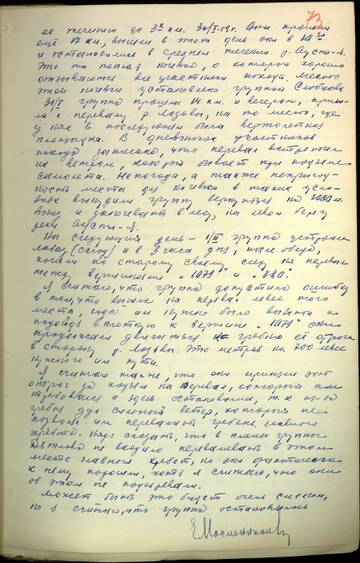 73
её течении до 3х км. 30/I-59г. Они прошли
ещё 17 км, вышли в этот день они в
и остановились в среднем течении р. Ауспи-я.
Это та тёплая ночёвка, о которой хорошо
отзываются все участники похода. Место
этой ночёвки установлено группой Слобцова
31/I группа прошла км. и вечером, пришла
к перевалу р. Лозьвы, на то место, где
у нас в последующем была вертолётная
площадка. В дневниках участников
похода записано, что перевал встретил
их ветром, который бывает при подъёме
самолёта. Непогода, а также непригодность
места для ночёвки в таких условиях
вынудили группу вернуться на
вниз и заночевать в лесу, на левом берегу
реки Ауспи-я.
На следующий день – 1/II группа устроила
лабаз (склад) и в 3 часа дня, после обеда,
пошли по старому своему следу на перевал
между вершинами "1079" и "880".
Я считаю, что группа допустила ошибку
в том, что вышла на перевал левее того
места, куда им нужно было выйти и
подойдя вплотную к вершине "1079" они
продолжали двигаться по гребню её отрога
в сторону р. Лозьвы. Это метров на 500 левее
нужного им пути.
Я считаю также, что они приняли этот
отрог за подъём на перевал, который им
требовался и здесь остановились, т.к. из-за
гребня дул сильный ветер, который не
позволил им перевалить гребень главного
хребта. Надо сказать, что в планы группы
Дятлова не входило переваливать в этом
месте главный хребет, но они фактически
к нему подошли, хотя я считаю, что они
об этом не подозревали.
Может быть это будет очень смелым,
но я считаю, что группа остановилась
Е Масленников